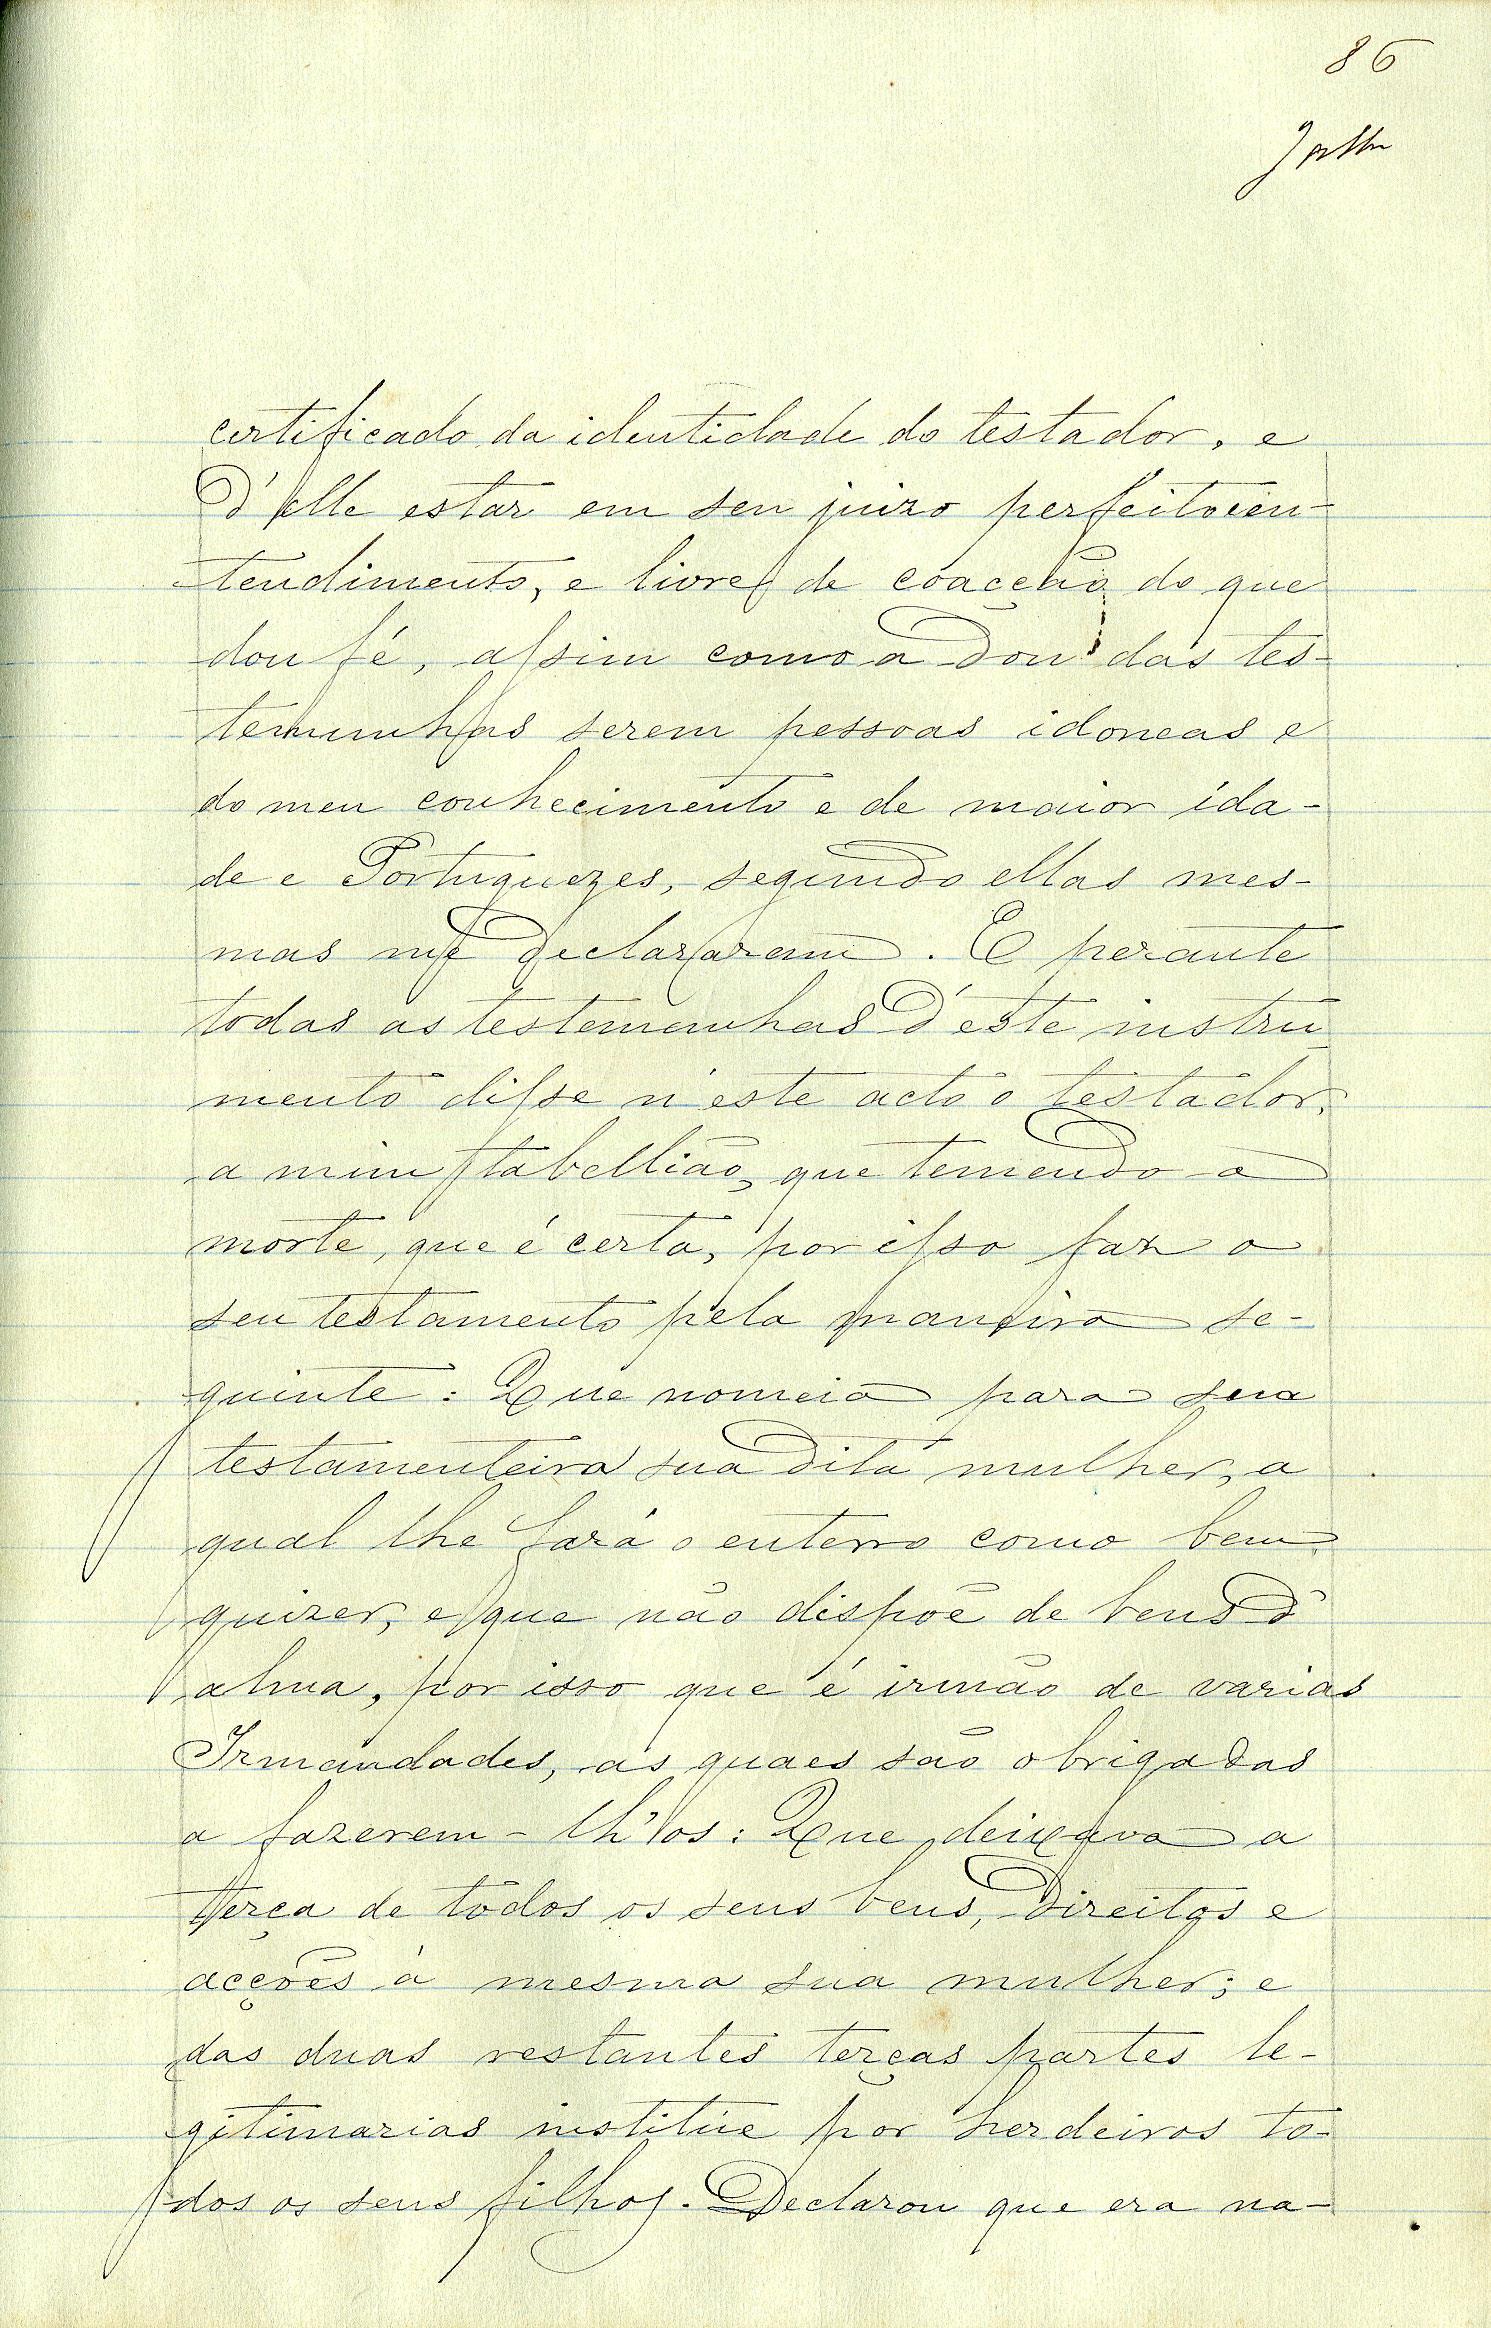 86
certificado da identidade do testador, e
d'elle estar em seu juizo perfeito e en-
tendimento, e livre de coacção do que
dou fé, assim como a dou das tes-
temunhas serem pessoas idoneas e
do meu conhecimento e de maior ida-
de e Portuguezes, segundo ellas mes-
mas me declararam. E perante
todas as testemunhas d'este instru-
mento disse n'este acto o testador,
a mim tabellião, que temendo a
morte, que é certa, por isso faz o
seu testamento pela maneira se-
guinte: Que nomeia para sua
testamenteira sua dita mulher, a
qual lhe fará o enterro como bem
quizer, e que não dispoê de bens d'
alma, por isso que é irmão de varias
Irmandades, as quaes são obrigadas
a fazerem-lh'os: Que deixava a
terça de todos os seus bens, direitos e
acções á mesma sua mulher; e
das duas restantes terças partes le-
gitimarias institúe por herdeiros to-
dos os seus filhos. Declarou que era na-